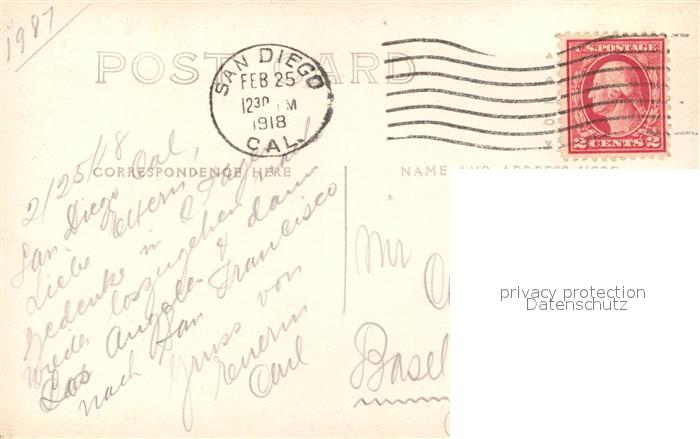 1987
POST CARD
SAN DIEGO
FEB 25
1230 PM
1918
CAL.
U.S. POSTAGE
2 CENTS 2
CORRESPONDENCE HERE
NAME AND ADDRESS HERE
2/25/18
San Diego Cal,
Liebe Eltern,
Gedenke in 2 Tagen
wieder loszugehen dann
Los Angeles &
nach San Francisco
Gruss von
Euerm
Carl
Mr
Basel
privacy protection
Datenschutz